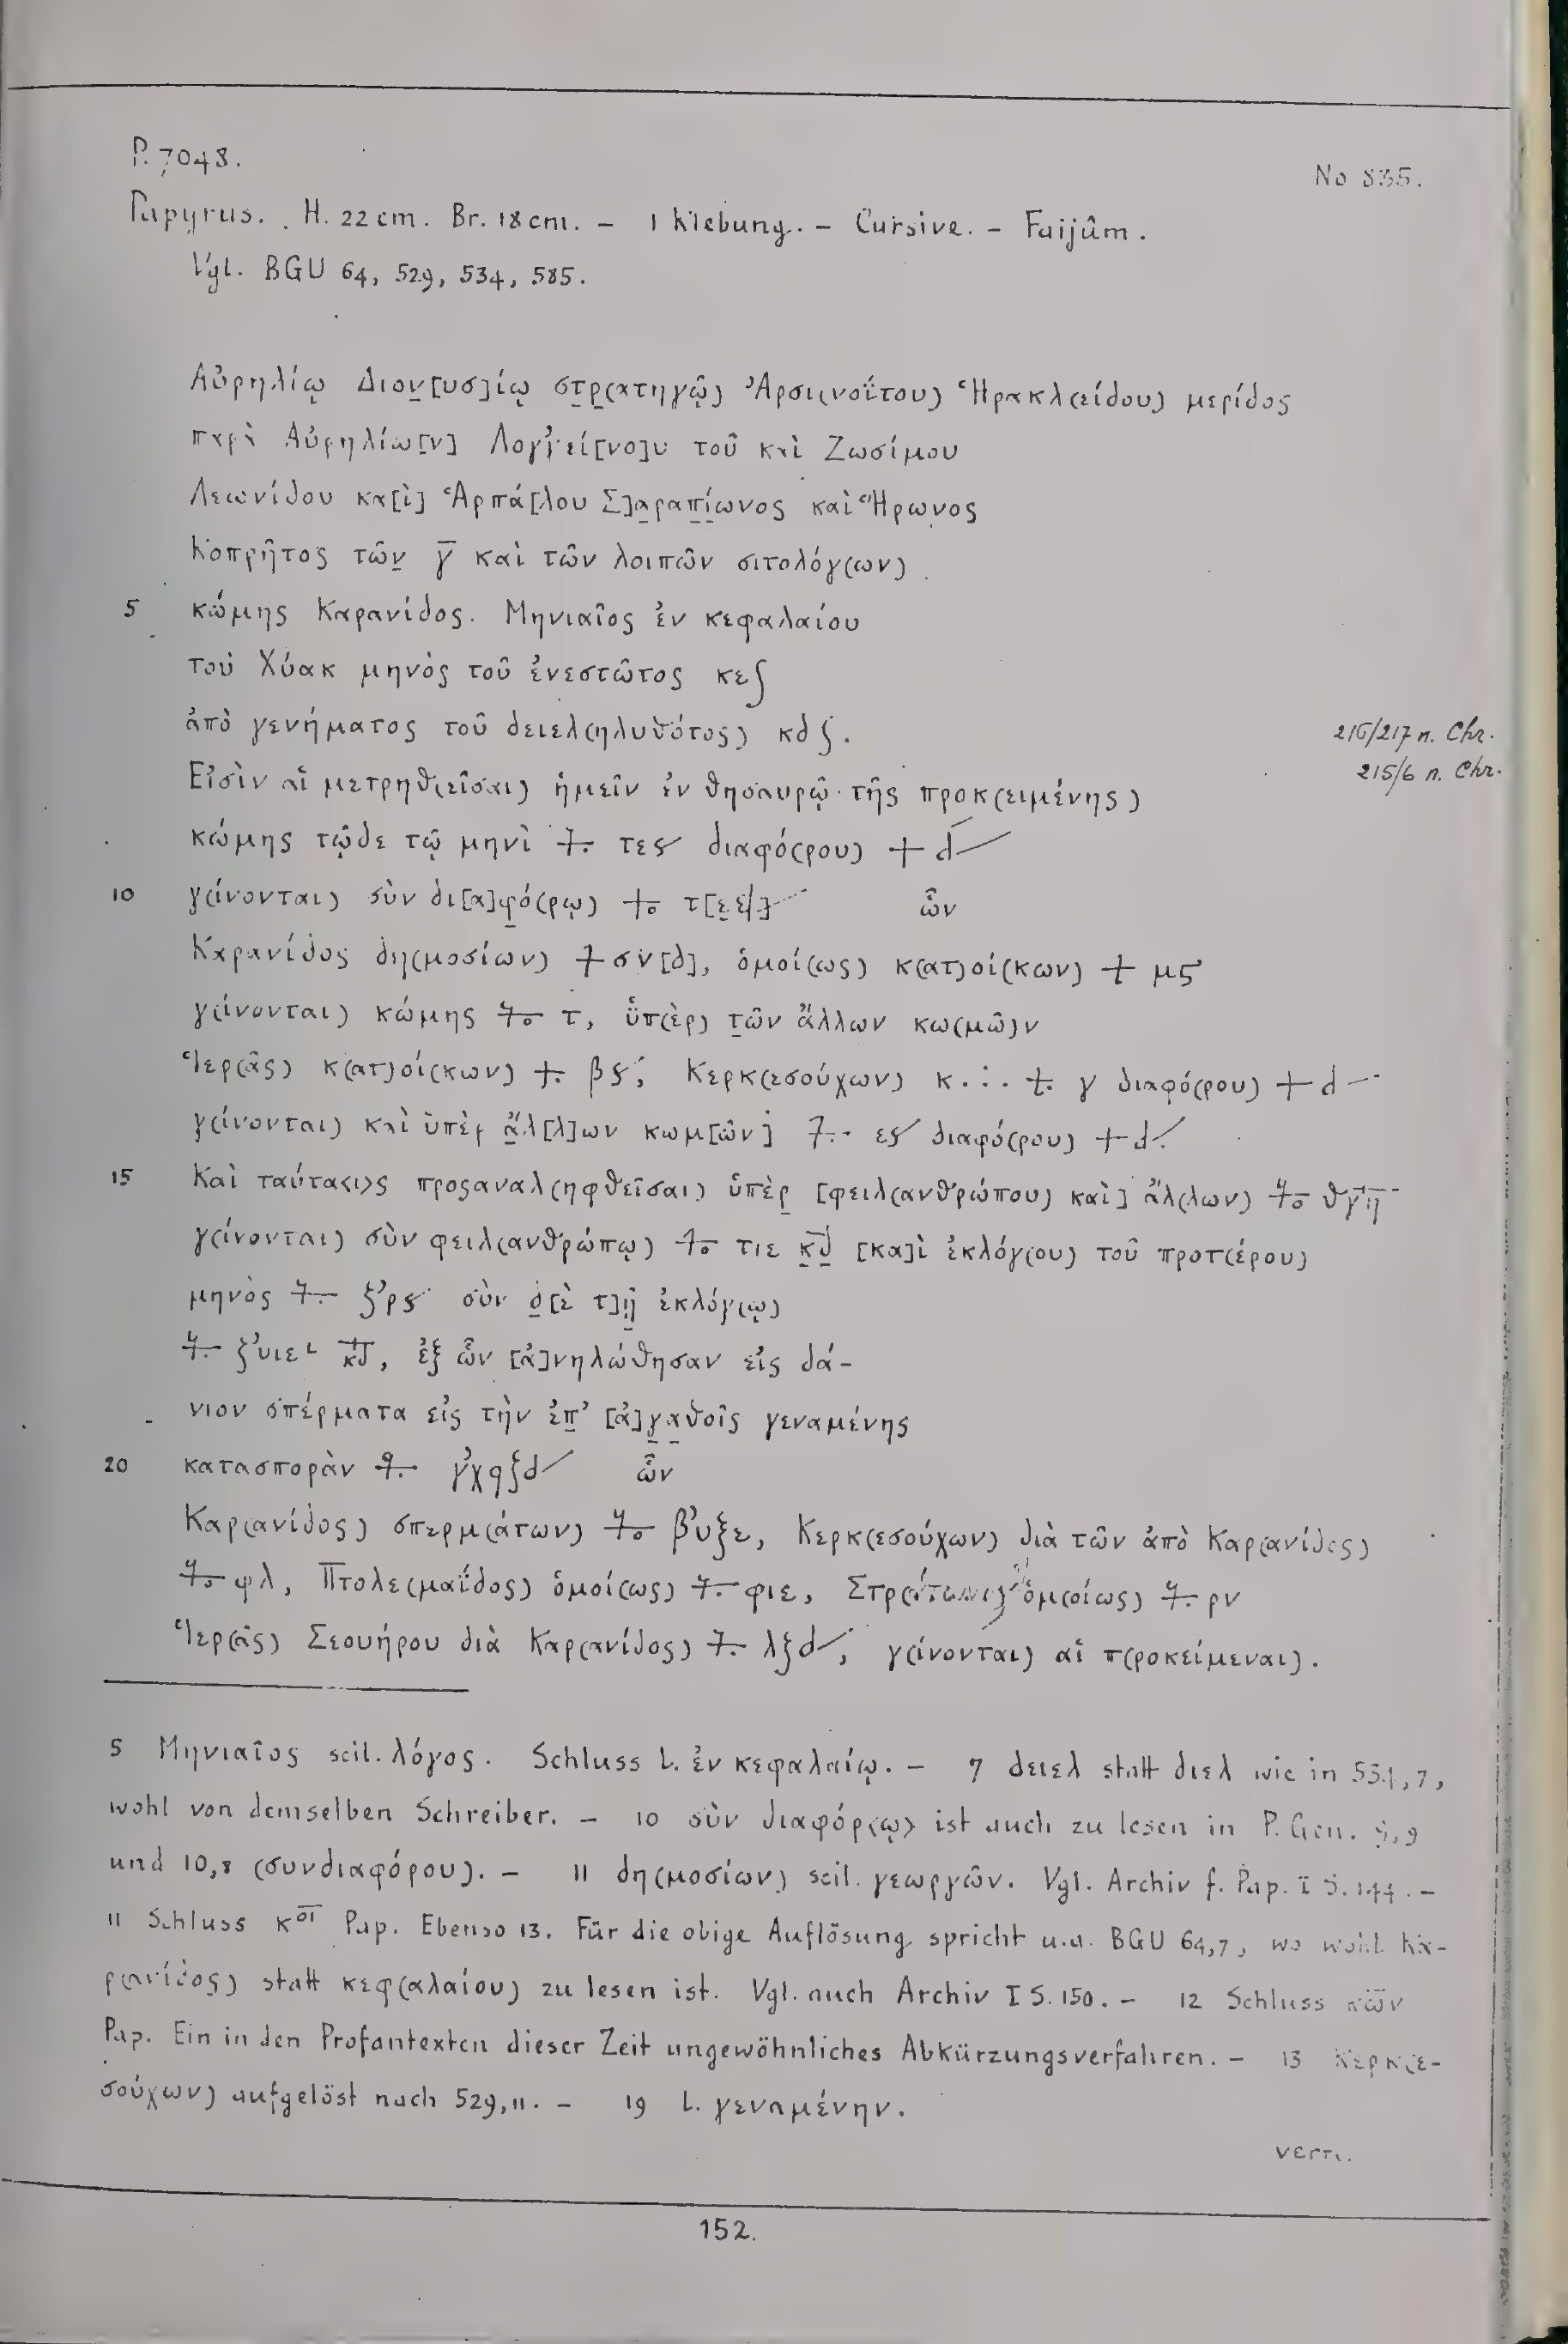 P. 7048.
No 835.
Papyrus. H. 22 cm. Br. 18 cm. – 1 Klebung. – Cursive. – Faijûm.
Vgl. BGU 64, 529, 534, 585.
Αὐρηλίῳ Διον[υσ]ίῳ στρ(ατηγῷ) Ἀρσι(νοΐτου) Ἡρακλ(είδου) μερίδος
παρὰ Αὐρηλίω[ν] Λογγεί[νο]υ τοῦ καὶ Ζωσίμου
Λεωνίδου κα[ὶ] Ἁρπά[λου Σ]αραπίωνος καὶ Ἥρωνος
Κοπρῆτος τῶν γ̅ καὶ τῶν λοιπῶν σιτολόγ(ων)
5 κώμης Καρανίδος. Μηνιαῖος ἐν κεφαλαίου
τοῦ Χύακ μηνὸς τοῦ ἐνεστῶτος κε∫
ἀπὸ γενήματος τοῦ δειελ(ηλυθότος) κδ∫.
216/217 n. Chr.
215/6 n. Chr.
Εἰσὶν αἱ μετρηθ(εῖσαι) ἡμεῖν ἐν θησαυρῷ τῆς προκ(ειμένης)
κώμης τῷδε τῷ μηνὶ ⨪ τες διαφό(ρου) + d
10 γ(ίνονται) σὺν δι[α]φό(ρῳ) ⨪ ὧν
Καρανίδος δη(μοσίων) ⨪ σν[δ], ὁμοί(ως) κ(ατ)οί(κων) ⨪ μς
γ(ίνονται) κώμης ⨪ τ, ὑπ(ὲρ) τῶν ἄλλων κω(μῶ)ν
Ἱερ(ᾶς) κ(ατ)οί(κων) ⨪ βς, Κερκ(εσούχων) κ... ⨪ γ διαφό(ρου) + d
γ(ίνονται) καὶ ὑπὲρ ἄλ[λ]ων κωμ[ῶν] ⨪ ες διαφό(ρου) + d
15 Καὶ ταύτα<ι>ς προσαναλ(ηφθεῖσαι) ὑπὲρ [φειλ(ανθρώπου) καὶ] ἄλ(λων) ⨪ θγ̅η̅
γ(ίνονται) σὺν φειλ(ανθρώπῳ) ⨪ τιε κ̅δ̅ [κα]ὶ ἐκλόγ(ου) τοῦ προτ(έρου)
μηνὸς ⨪ ζ’ρς σὺν δ[ὲ τ]ῇ ἐκλόγ(ῳ)
⨪ ζ’υιε∟ κ̅δ̅, ἐξ ὧν [ἀ]νηλώθησαν εἰς δά-
νιον σπέρματα εἰς τὴν ἐπ’ [ἀ]γαθοῖς γεναμένης
20 κατασπορὰν ⨪ γ’χϟ∫d ὧν
Καρ(ανίδος) σπερμ(άτων) ⨪ β’υξε, Κερκ(εσούχων) διὰ τῶν ἀπὸ Καρ(ανίδος)
⨪ φλ, Πτολε(μαΐδος) ὁμοί(ως) ⨪ φιε, ὁμ(οίως) ⨪ ρν
Ἱερ(ᾶς) Σεουήρου διὰ Καρ(ανίδος) ⨪ λ∫d, γ(ίνονται) αἱ π(ροκείμεναι).
5 Μηνιαῖος scil. λόγος. Schluss l. ἐν κεφαλαίῳ. – 7 δειελ statt διελ wie in 534,7,
wohl von demselben Schreiber. – 10 σὺν διαφόρ(ῳ) ist auch zu lesen in P. Gen. 9
und 10,8 (συνδιαφόρου). – 11 δη(μοσίων) scil. γεωργῶν. Vgl. Archiv f. Pap. I S. 144. –
11 Schluss κο̅ι̅ Pap. Ebenso 13. Für die obige Auflösung spricht u.a. BGU 64,7, wo wohl Κα-
ρ(ανίδος) statt κεφ(αλαίου) zu lesen ist. Vgl. auch Archiv I S. 150. – 12 Schluss κω̅ν
Pap. Ein in den Profantexten dieser Zeit ungewöhnliches Abkürzungsverfahren. – 13 Κερκ(ε-
σούχων) aufgelöst nach 529,11. – 19 l. γεναμένην.
verte.
152.